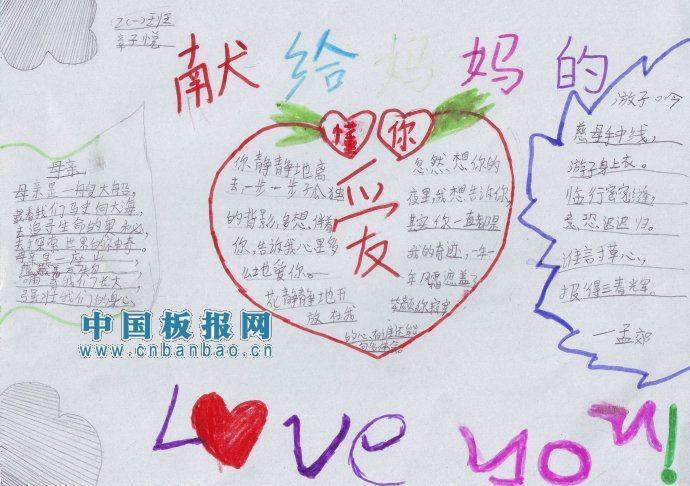 献给妈妈的
2(一)班
母亲
母亲是一艘大船,
载着我们驶向大海,
去追寻生命的奥秘,
去探索世界的神奇。
母亲是一座山,
哺育我们长大,
强壮我们的身心。
懂你
爱
你静静地离
去一步一步孤独
的背影,多想伴着
你,告诉我心里多
么地爱你。
花静静地开
放在我
忽然想你的
夜里,我想告诉你,
其实你一直都是
我的奇迹,一年一
年风霜遮盖了
笑颜你寂寞
的心有谁还能
游子。吟
慈母手中线,
游子身上衣。
临行密密缝,
意恐迟迟归。
谁言寸草心,
报得三春晖。
—孟郊
中国板报网
www.cnbanbao.cn
Love you!